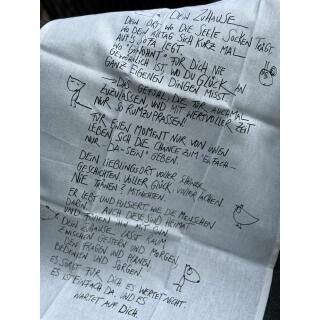 DEIN ZUHAUSE
DEIN ORT, WO DIE SEELE SOCKEN TRÄGT
WO DEIN ALLTAG SICH KURZ MAL
AUF'S SOFA LEGT
WO "GEWOHNT" FÜR DICH NIE
GEWÖHNLICH IST, WO DU GLÜCK IN
GANZ EIGENEN DINGEN MISST
DAS GEFÜHL DIE TÜR AUCH MAL
ZUZULASSEN, UND MIT WERTVOLLER ZEIT
NUR SO RUMZUPRASSEN
FÜR EINEN MOMENT NUR VON
LEBEN SICH DIE CHANCE ZUM "EINFACH
NUR DA-SEIN" GEBEN.
DEIN LIEBLINGSORT VOLLER SCHÖNER
GESCHICHTEN. VOLLER GLÜCK. VOLLER LACHEN
TRÄNEN? MITNICHTEN.
ER LEBT UND PULSIERT WIE DIE MENSCHEN
DARIN, AUCH DIESE SIND HEIMAT
UND
DEIN ZUHAUSE LÄSST RAUM
ZWISCHEN GESTERN UND MORGEN
FRAGEN UND
UND SORGEN
ES SORGT FÜR DICH, ES WERTET NICHT
ES IST EINFACH DA, UND ES
WARTET AUF DICH.